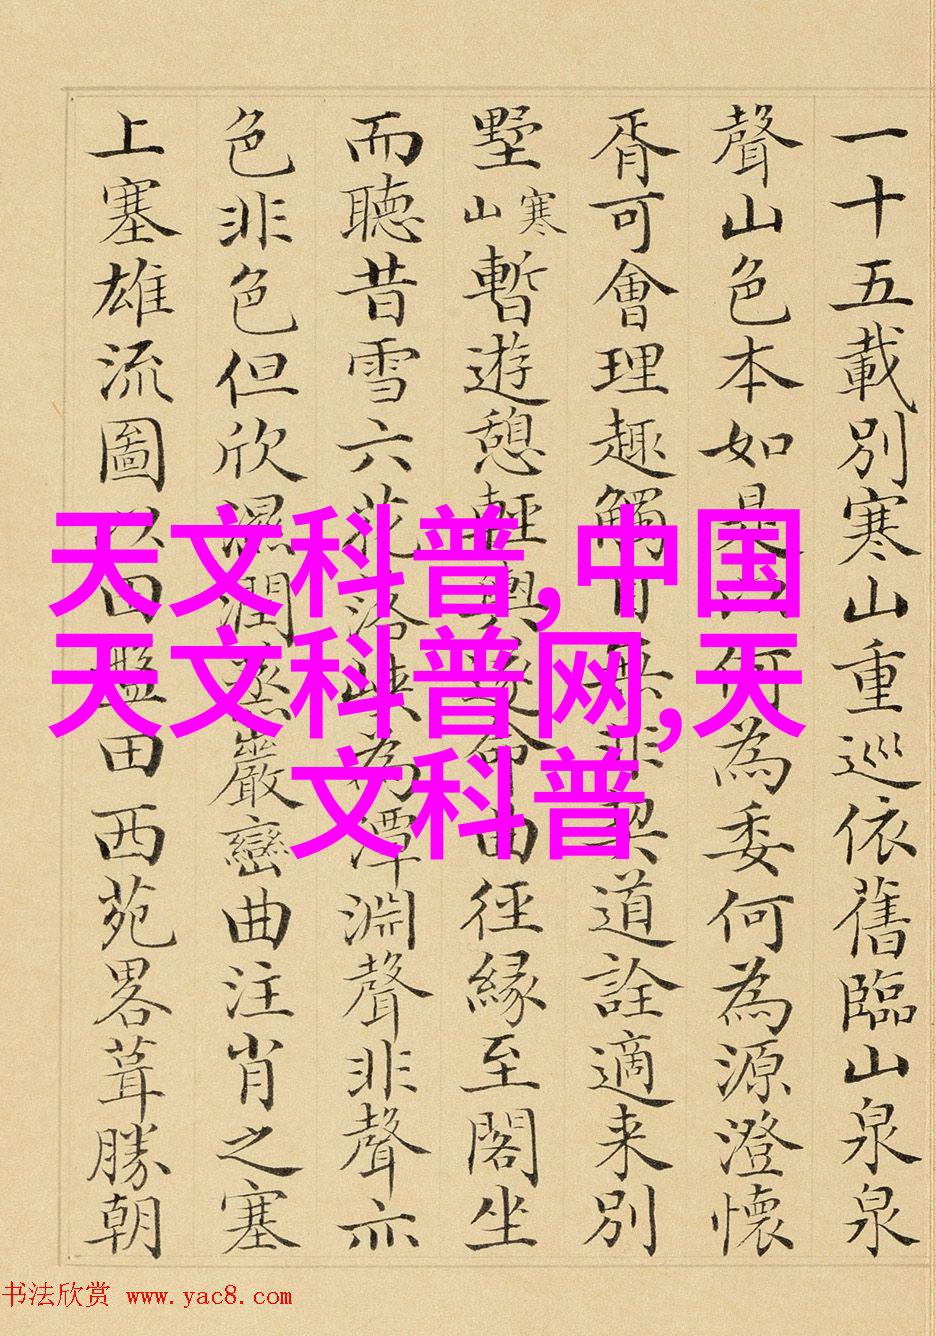 一十五載別寒山重巡依舊臨山泉泉
聲山色本如是何為委何為源澄懷
胥可會理趣觸目無非契道詮適来別
墅寒山暫遊憩輕輿命由徑緣至閣坐
而聽昔雪六花落峽為潭淵聲非聲亦
色非色但欣濕潤巖巒曲注肖之塞
上塞雄流圖以田西苑畧葺勝朝
天文科普,中国
天文科普网,天
文科普
书法欣赏 www.yac8.com